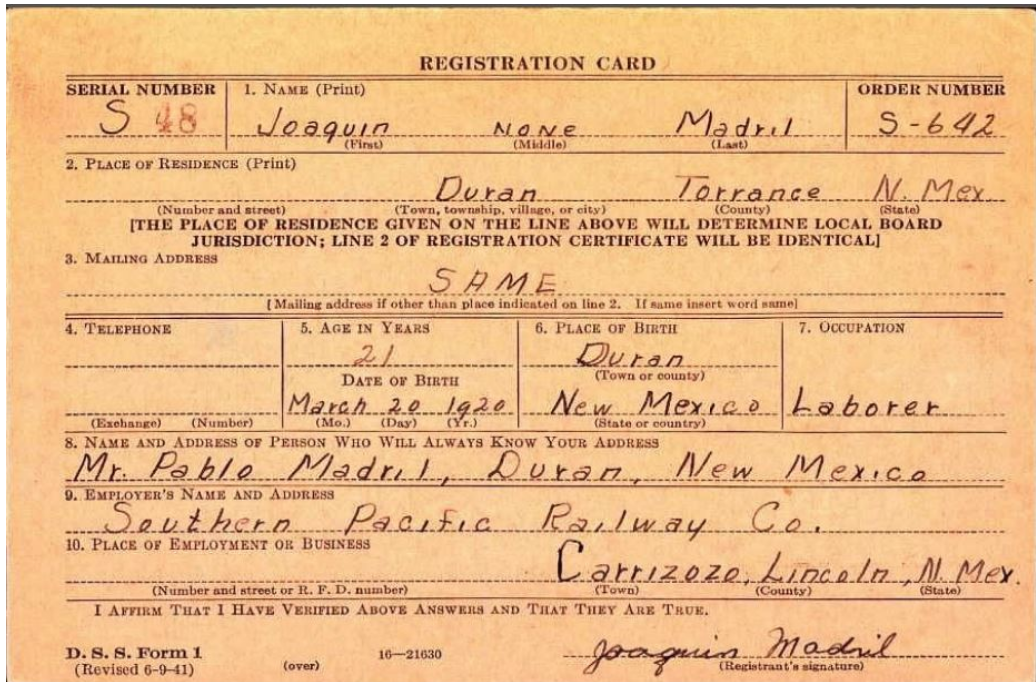 REGISTRATION CARD
SERIAL NUMBER 1. NAME (Print) ORDER NUMBER
S 48 Joaquin NONE Madril S-642
(First) (Middle) (Last)
2. PLACE OF RESIDENCE (Print)
Duran Torrance N. Mex.
(Number and street) (Town, township, village, or city) (County) (State)
[THE PLACE OF RESIDENCE GIVEN ON THE LINE ABOVE WILL DETERMINE LOCAL BOARD
JURISDICTION; LINE 2 OF REGISTRATION CERTIFICATE WILL BE IDENTICAL]
3. MAILING ADDRESS
SAME
[Mailing address if other than place indicated on line 2. If same insert word same]
4. TELEPHONE 5. AGE IN YEARS 6. PLACE OF BIRTH 7. OCCUPATION
21 Duran
DATE OF BIRTH (Town or county)
March 20 1920 New Mexico Laborer
(Exchange) (Number) (Mo.) (Day) (Yr.) (State or country)
8. NAME AND ADDRESS OF PERSON WHO WILL ALWAYS KNOW YOUR ADDRESS
Mr. Pablo Madril, Duran, New Mexico
9. EMPLOYER'S NAME AND ADDRESS
Southern Pacific Railway Co.
10. PLACE OF EMPLOYMENT OR BUSINESS
Carrizozo, Lincoln, N. Mex.
(Number and street or R. F. D. number) (Town) (County) (State)
I AFFIRM THAT I HAVE VERIFIED ABOVE ANSWERS AND THAT THEY ARE TRUE.
D. S. S. Form 1 16—21630 Joaquin Madril
(Revised 6-9-41) (over) (Registrant's signature)